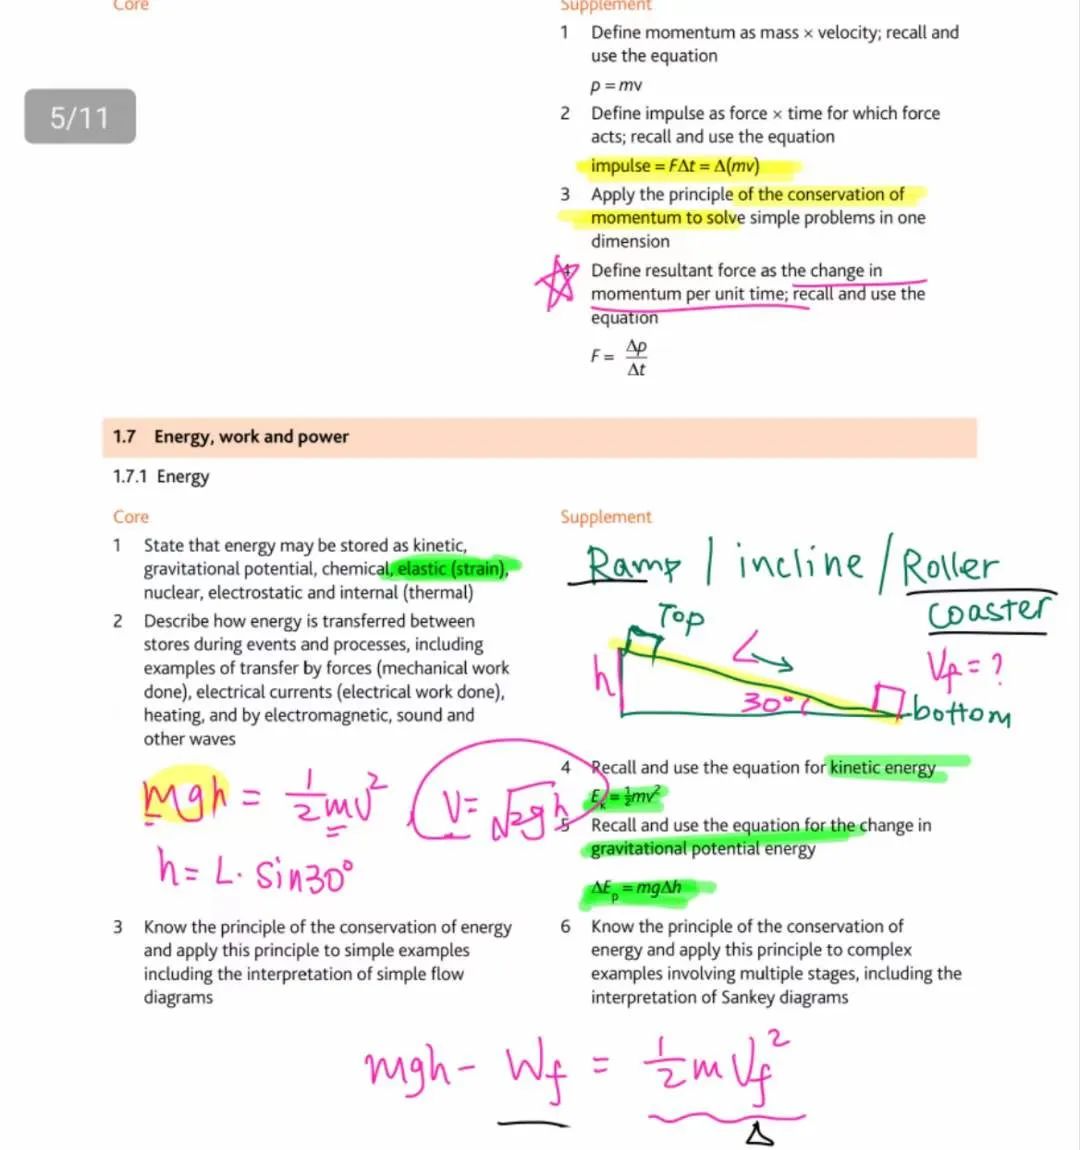 Core
Supplement
1 Define momentum as mass × velocity; recall and
use the equation
p = mv
5/11
2 Define impulse as force × time for which force
acts; recall and use the equation
impulse = FΔt = Δ(mv)
3 Apply the principle of the conservation of
momentum to solve simple problems in one
dimension
Define resultant force as the change in
momentum per unit time; recall and use the
equation
F = Δp/Δt
1.7 Energy, work and power
1.7.1 Energy
Core
1 State that energy may be stored as kinetic,
gravitational potential, chemical, elastic (strain),
nuclear, electrostatic and internal (thermal)
2 Describe how energy is transferred between
stores during events and processes, including
examples of transfer by forces (mechanical work
done), electrical currents (electrical work done),
heating, and by electromagnetic, sound and
other waves
Supplement
Ramp / incline / Roller
coaster
Top
L
h
Vf = ?
30°
bottom
mgh = ½mv²
V = √2gh
h = L · Sin30°
4 Recall and use the equation for kinetic energy
Eₖ = ½mv²
5 Recall and use the equation for the change in
gravitational potential energy
ΔEₚ = mgΔh
3 Know the principle of the conservation of energy
and apply this principle to simple examples
including the interpretation of simple flow
diagrams
6 Know the principle of the conservation of
energy and apply this principle to complex
examples involving multiple stages, including the
interpretation of Sankey diagrams
mgh - Wf = ½mVf²